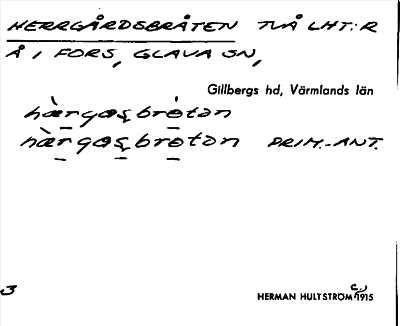 HERRGÅRDSBRÅTEN TVÅ LHT:R
Å I FORS, GLAVA SN,
Gillbergs hd, Värmlands län
hærgosbrotən
hærgosbrotən PRIM.-ANT.
3
HERMAN HULTSTRÖM C:a 1915